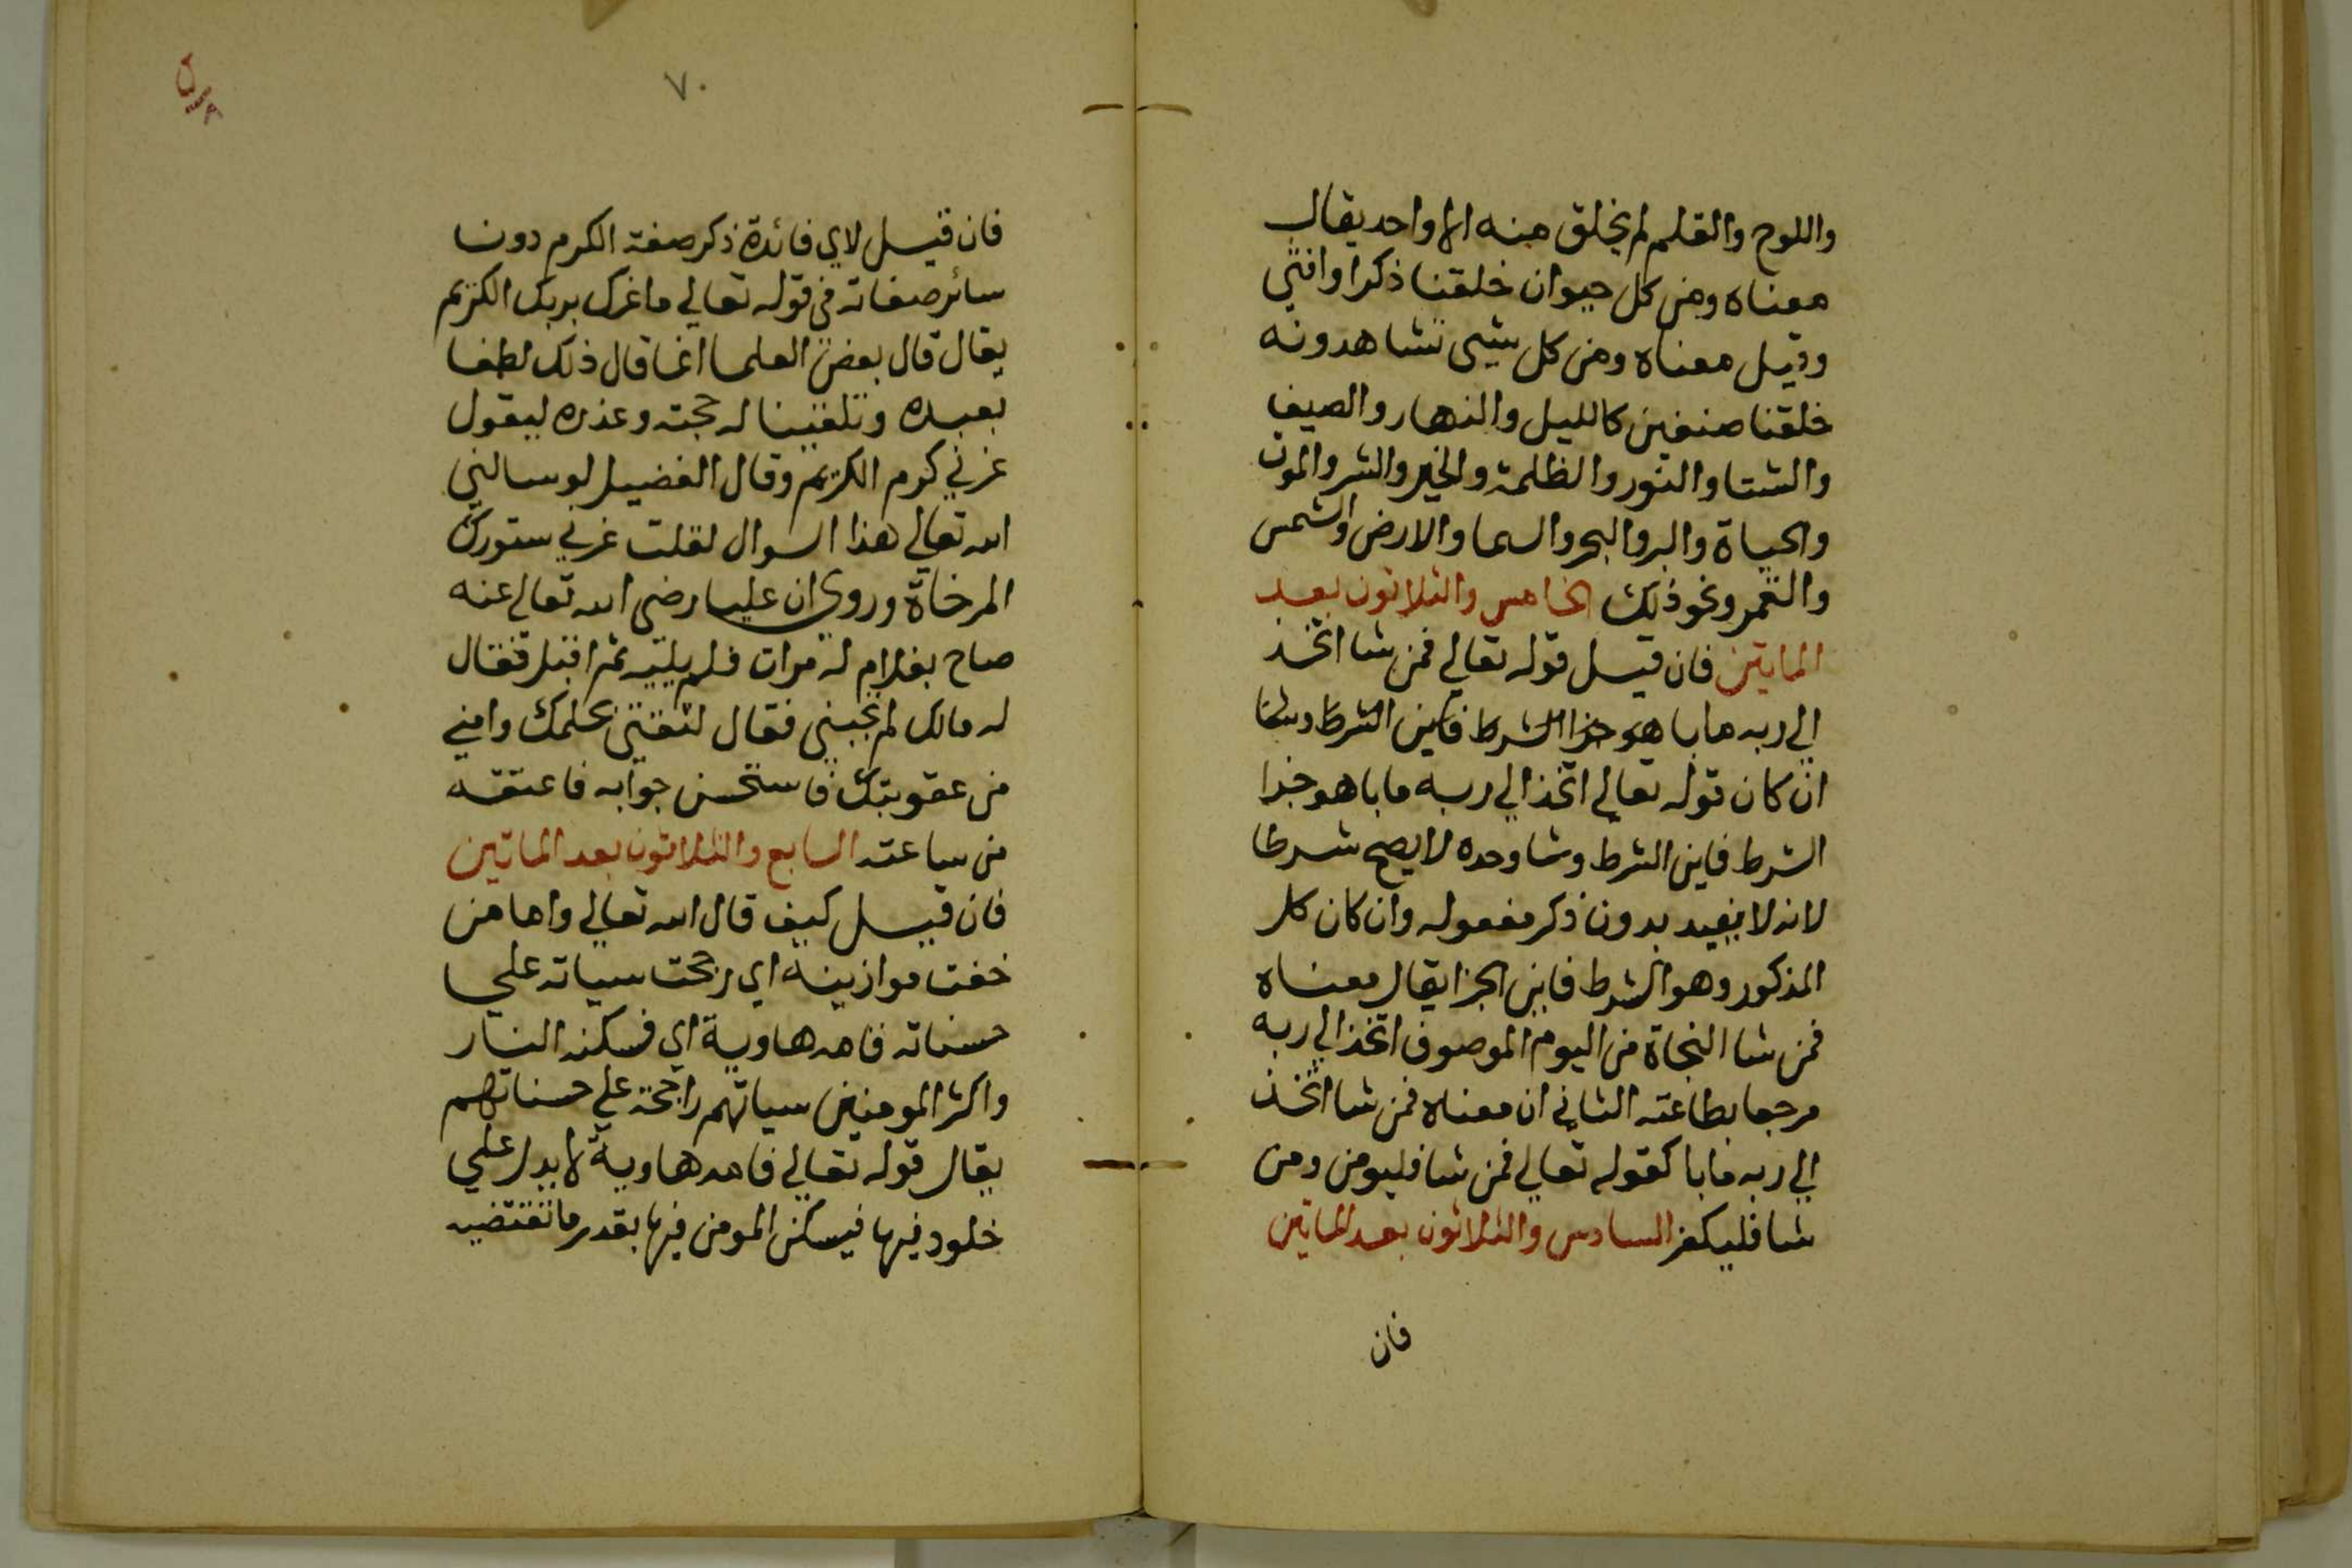 واللوح والقلم لم يخلق منه الا واحد يقال
معناه ومن كل حيوان خلقنا ذكرا وانثي
وقيل معناه ومن كل شيى تشاهدونه
خلقنا صنفين كالليل والنهار والصيف
والشتا والنور والظلمة والخير والشر والموت
والحياة والبر والبحر والسما والارض والشمس
والقمر ونحو ذلك الخامس والثلاثون بعد
المايتين فان قيل قوله تعالي فمن شا اتخذ
الي ربه مابا هو جزا الشرط فاين الشرط وشا
ان كان قوله تعالي اتخذ الي ربه مابا هو جزا
الشرط فاين الشرط وشا وحده لا يصح شرطا
لانه لا يفيد بدون ذكر مفعوله وان كان كل
المذكور وهو الشرط فاين الجزا يقال معناه
فمن شا النجاة من اليوم الموصوف اتخذ الي ربه
مرجعا بطاعته الثاني ان معناه فمن شا اتخذ
الي ربه مابا كقوله تعالي فمن شا فليومن ومن
شا فليكفر السادس والثلاثون بعد الماتين
فان
٧٠
فان قيل لاي فائدة ذكر صفة الكرم دون
سائر صفاته في قوله تعالي ما غرك بربك الكريم
يقال قال بعض العلما انما قال ذلك لطفا
بعبده وتلقينا له حجته وعذره ليقول
غرني كرم الكريم وقال الفضيل لو سالني
الله تعالي هذا السوال لقلت غرني ستورك
المرخاة وروي ان عليا رضي الله تعالي عنه
صاح بغلام له مرات فلم يلبيه ثم اقبل فقال
له مالك لم تجبني فقال لثقتي بحلمك وامني
من عقوبتك فاستحسن جوابه فاعتقه
من ساعته السابع والثلاثون بعد الماتين
فان قيل كيف قال الله تعالي واما من
خفت موازينه اي رجحت سياته علي
حسناته فامه هاوية اي فسكنه النار
واكثر المومنين سياتهم راجحة علي حسناتهم
يقال قوله تعالي فامه هاوية لا يدل علي
خلود فيها فيسكن المومن فيها بقدر ما تقتضيه